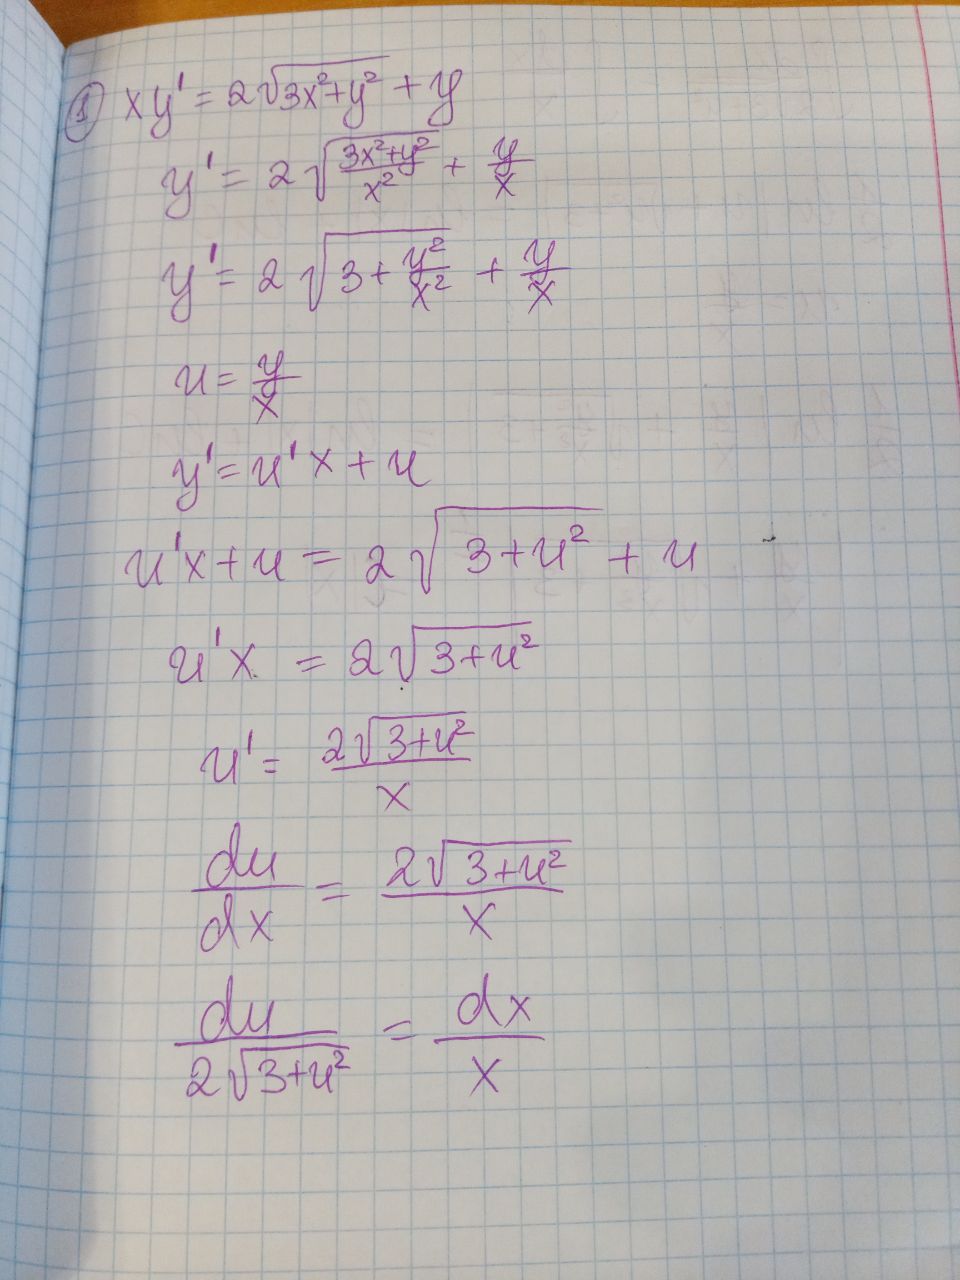 ① xy' = 2√(3x²+y²) + y
y' = 2√((3x²+y²)/x²) + y/x
y' = 2√(3 + y²/x²) + y/x
u = y/x
y' = u'x + u
u'x + u = 2√(3+u²) + u
u'x = 2√(3+u²)
u' = 2√(3+u²)/x
du/dx = 2√(3+u²)/x
du/(2√(3+u²)) = dx/x